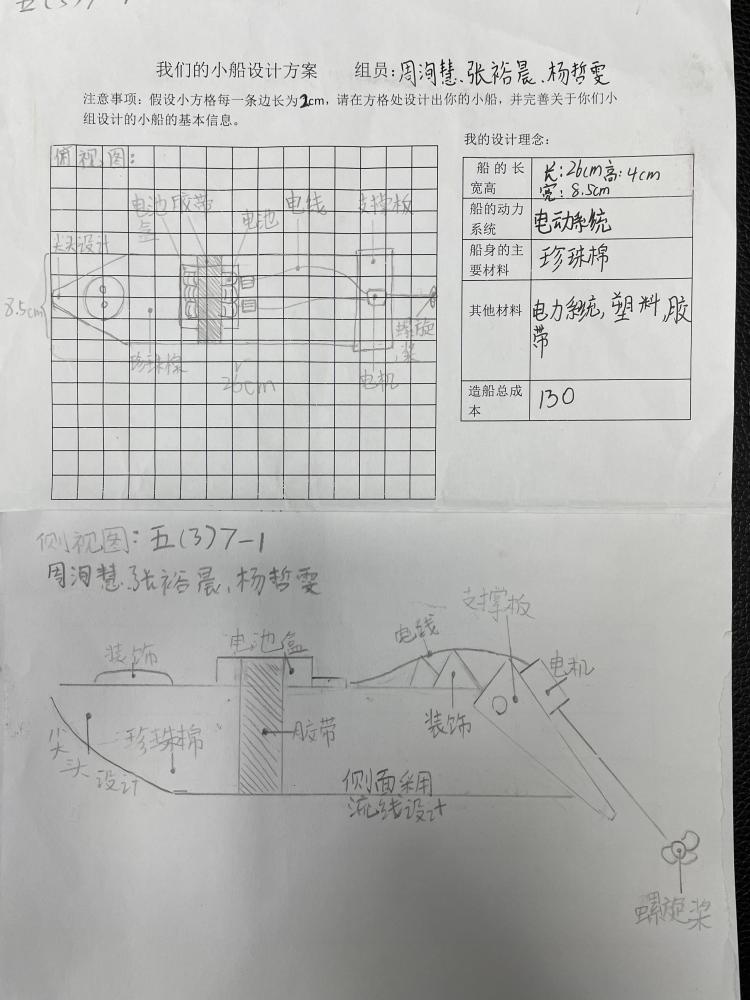 五(3)7-1
我们的小船设计方案 组员:周洵慧、张裕晨、杨哲雯
注意事项：假设小方格每一条边长为2cm，请在方格处设计出你的小船，并完善关于你们小
组设计的小船的基本信息。
我的设计理念：
俯视图:
电池盒
胶带
电池
电线
支撑板
尖头设计
8.5cm
珍珠棉
26cm
电机
螺旋桨
船的长宽高 长:26cm 高:4cm 宽:8.5cm
船的动力系统 电动系统
船身的主要材料 珍珠棉
其他材料 电力系统,塑料,胶带
造船总成本 130
侧视图:五(3)7-1
周洵慧、张裕晨、杨哲雯
装饰
电池盒
电线
支撑板
电机
尖头设计
珍珠棉
胶带
装饰
侧面采用
流线设计
螺旋桨